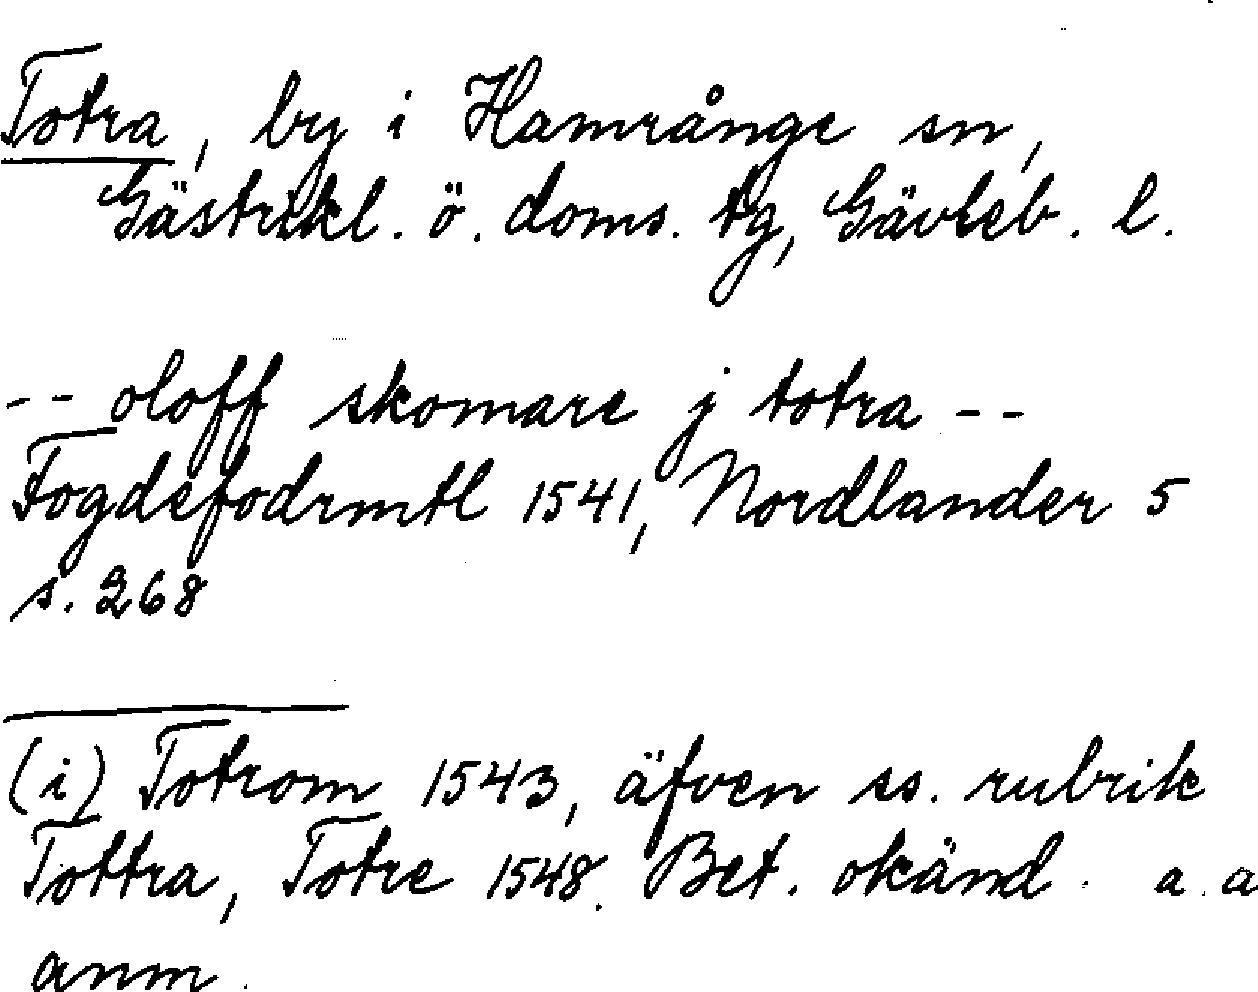 Totra, by i Hamrånge sn,
Gästrikl. ö. doms. tg, Gävleb. l.
-- oloff skomare j totra --
Fogdefodrmtl 1541, Nordlander 5
s. 268
(i) Totrom 1543, äfven ss. rubrik
Tottra, Totre 1548. Bet. okänd. a. a
anm.